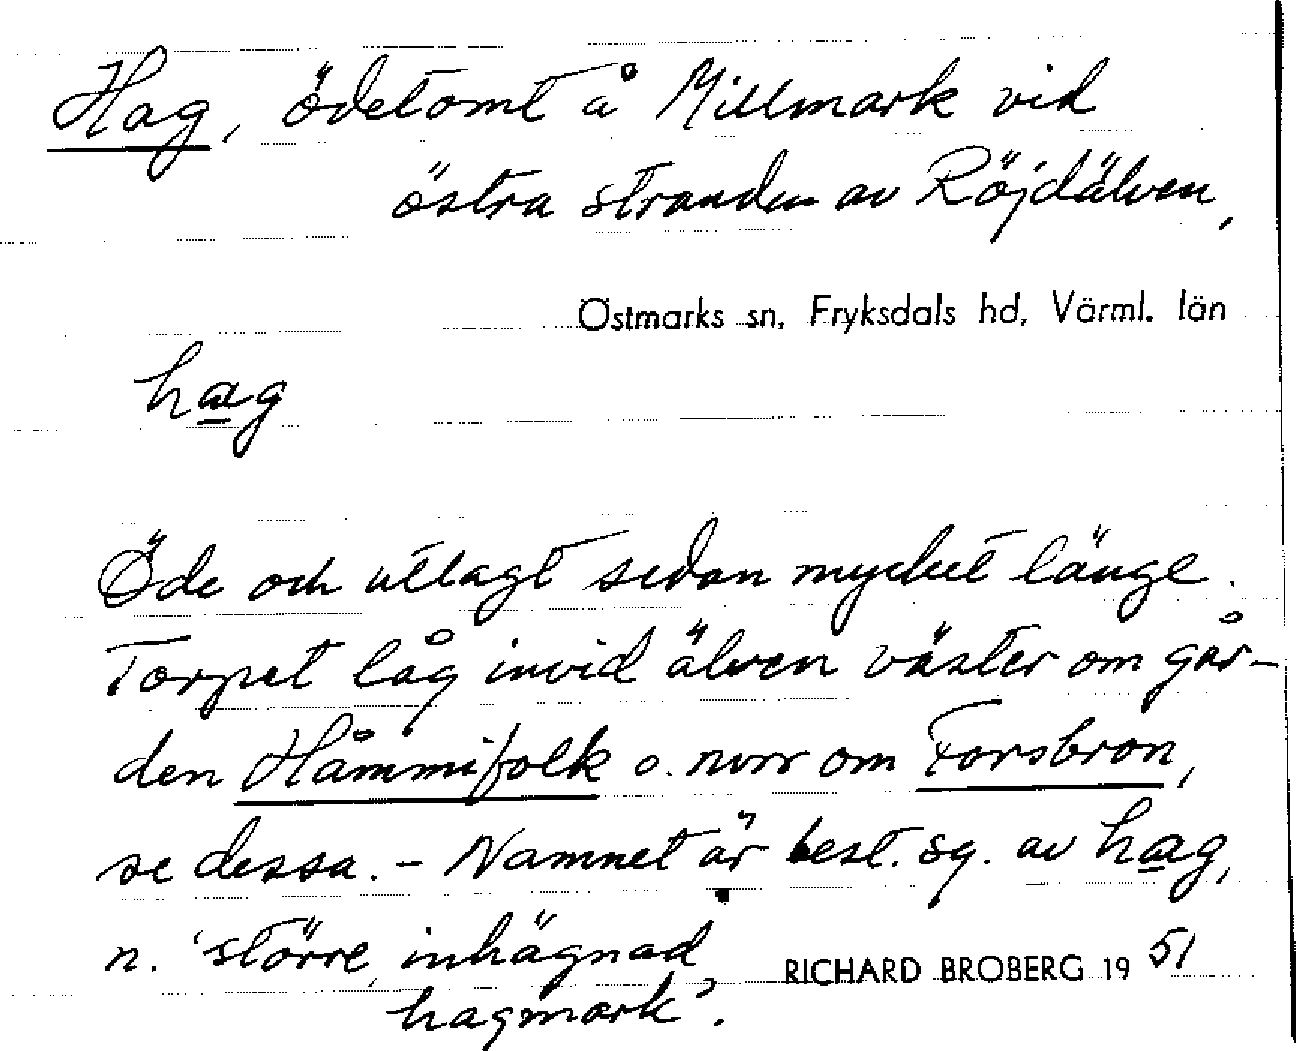 Hag, ödetomt å Millmark vid
östra stranden av Röjdälven,
Östmarks sn, Fryksdals hd, Värml. län
hag
Öde och utlagt sedan mycket länge.
Torpet låg invid älven väster om går-
den Håmmifolk o. norr om Forsbron,
se dessa. - Namnet är best. sg. av hag,
n. 'större inhägnad,
hagmark'.
RICHARD BROBERG 1951